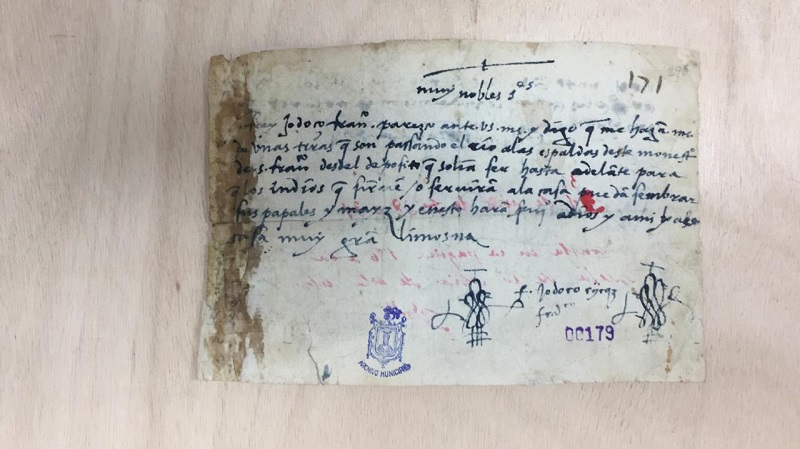 muy nobles s.es
171
fray Jodoco franco. parezco ante vs. ms. y digo q me hagan md.
de unas tiras q son passando el rio a las espaldas deste monesto
de .s. franco desdel deposito q solia ser hasta adelante para
q los indios q sirven o serviran a la casa puedan sembrar
sus papas y mayz y en esto haran serviº a dios y a mi y a la
casa muy gran limosna
f. Jodoco
00179
ARCHIVO MUNICIPAL